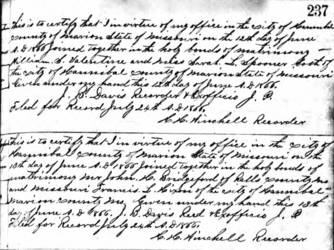 237
This is to certify that I in virtue of my office in the City of Hannibal
County of Marion State of Missouri on the 12th day of June
A.D. 1866 joined together in the holy bonds of matrimony
William S. Valentine and Miss Sarah L. Spooner both of
the City of Hannibal County of Marion State of Missouri
Given under my hand this 12th day of June A.D. 1866.
J. B. Davis Recorder & Exofficio J. P.
Filed for Record July 24th A.D. 1866.
C. H. Winchell Recorder
This is to certify that I in virtue of my office in the City of
Hannibal County of Marion State of Missouri on the
13th day of June A.D. 1866 joined together in the holy bonds of
matrimony Mr John H. Bridgeford of Ralls County Mo
and Miss Francis L. of the City of Hannibal
Marion County Mo, Given under my hand this 13th
day of June A.D. 1866. J. B. Davis Recd & Exofficio J. P.
Filed for Record July 24th A.D. 1866.
C. H. Winchell Recorder